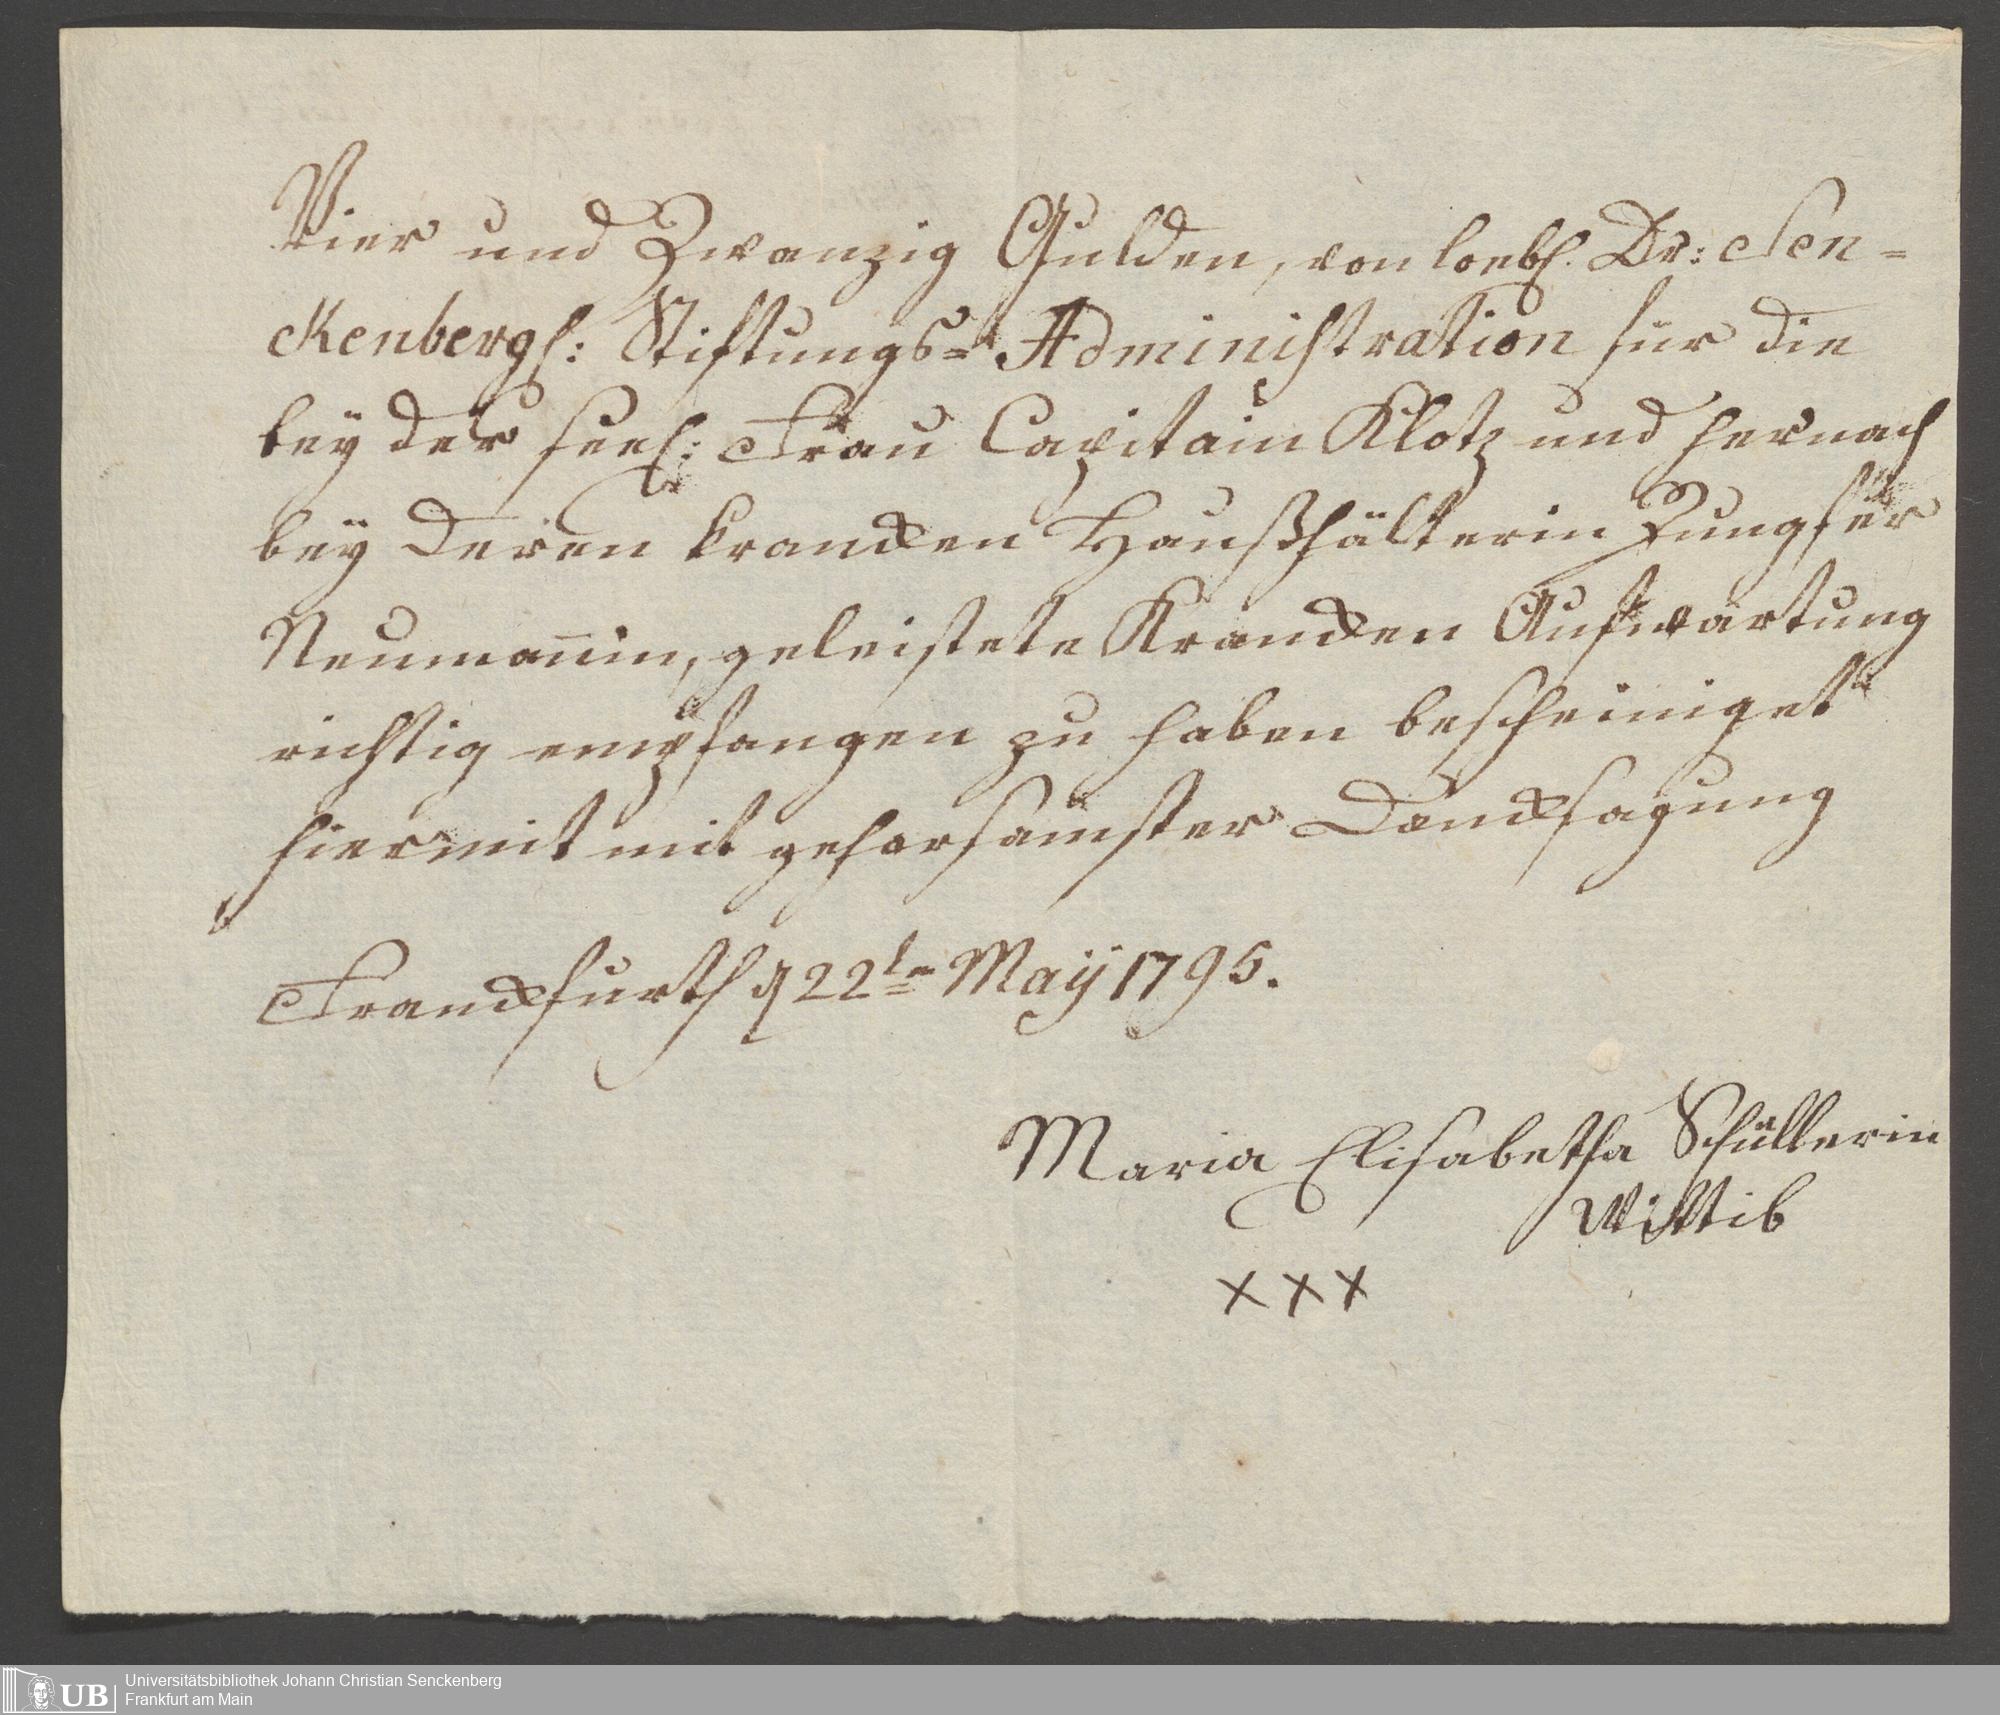 Vier und Zwanzig Gulden, von loebl. Dr: Sen=
ckenbergl: Stiftungs= Administration für die
bey der seel: Frau Capitain Klotz und hernach
bey deren krancken Haußhälterin Jungfer
Neumañin, geleistete Krancken Aufwartung
richtig empfangen zu haben bescheiniget
hiermit mit gehorsamster Dancksagung
Franckfurth d 22ten May 1795.
Maria Elisabetha Schüllerin
Wittib
x x x
Universitätsbibliothek Johann Christian Senckenberg
UB
Frankfurt am Main